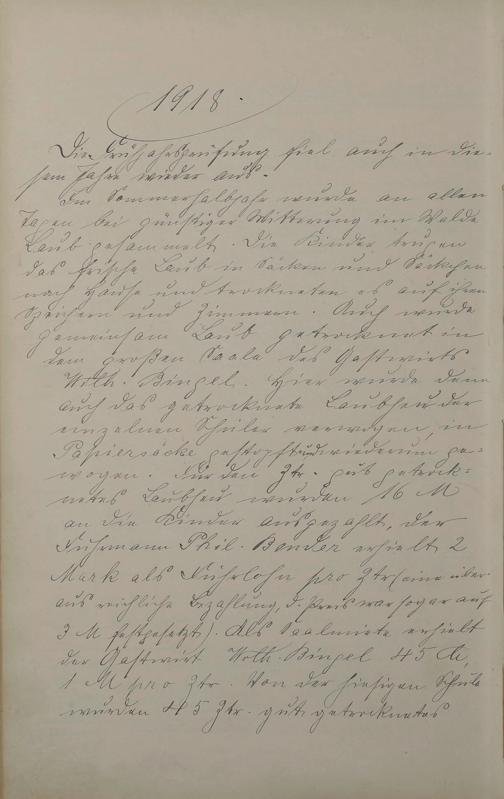 1918.
Die Frühjahrsprüfung fiel auch in die-
sem Jahre wieder aus.
Im Sommerhalbjahr wurde an allen
Tagen bei günstiger Witterung im Walde
Laub gesammelt. Die Kinder trugen
das frische Laub in Säcken und Säckchen
nach Hause und trockneten es auf ihren
Speichern und Zimmern. Auch wurde
gemeinsam Laub getrocknet in
dem großen Saale des Gastwirts
Wilh. Bingel. Hier wurde dann
auch das getrocknete Laubheu der
einzelnen Schüler verwogen, in
Papiersäcke gestopft und wiederum ge-
wogen. Für den Ztr. gut getrock-
netes Laubheu wurden 16 M
an die Kinder ausgezahlt, der
Fuhrmann Phil. Bender erhielt 2
Mark als Fuhrlohn pro Ztr (eine über-
aus reichliche Bezahlung, d. Preis war sogar auf
3 M festgesetzt). Als Saalmiete erhielt
der Gastwirt Wilh. Bingel 45 M,
1 M pro Ztr. Von der hiesigen Schule
wurden 45 Ztr. gut getrocknetes